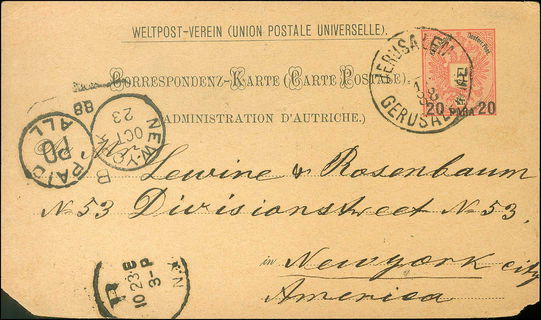 WELTPOST-VEREIN (UNION POSTALE UNIVERSELLE).
CORRESPONDENZ-KARTE (CARTE POSTALE).
(ADMINISTRATION D'AUTRICHE).
JERUSALEM
GERUSALEMME
20 PARA 20
NEW-YORK
OCT
23
88
B
PAID
ALL
Lewine & Rosenbaum
No 53 Divisionstreet No 53.
in Newyork City
America
10 23 E
3-P